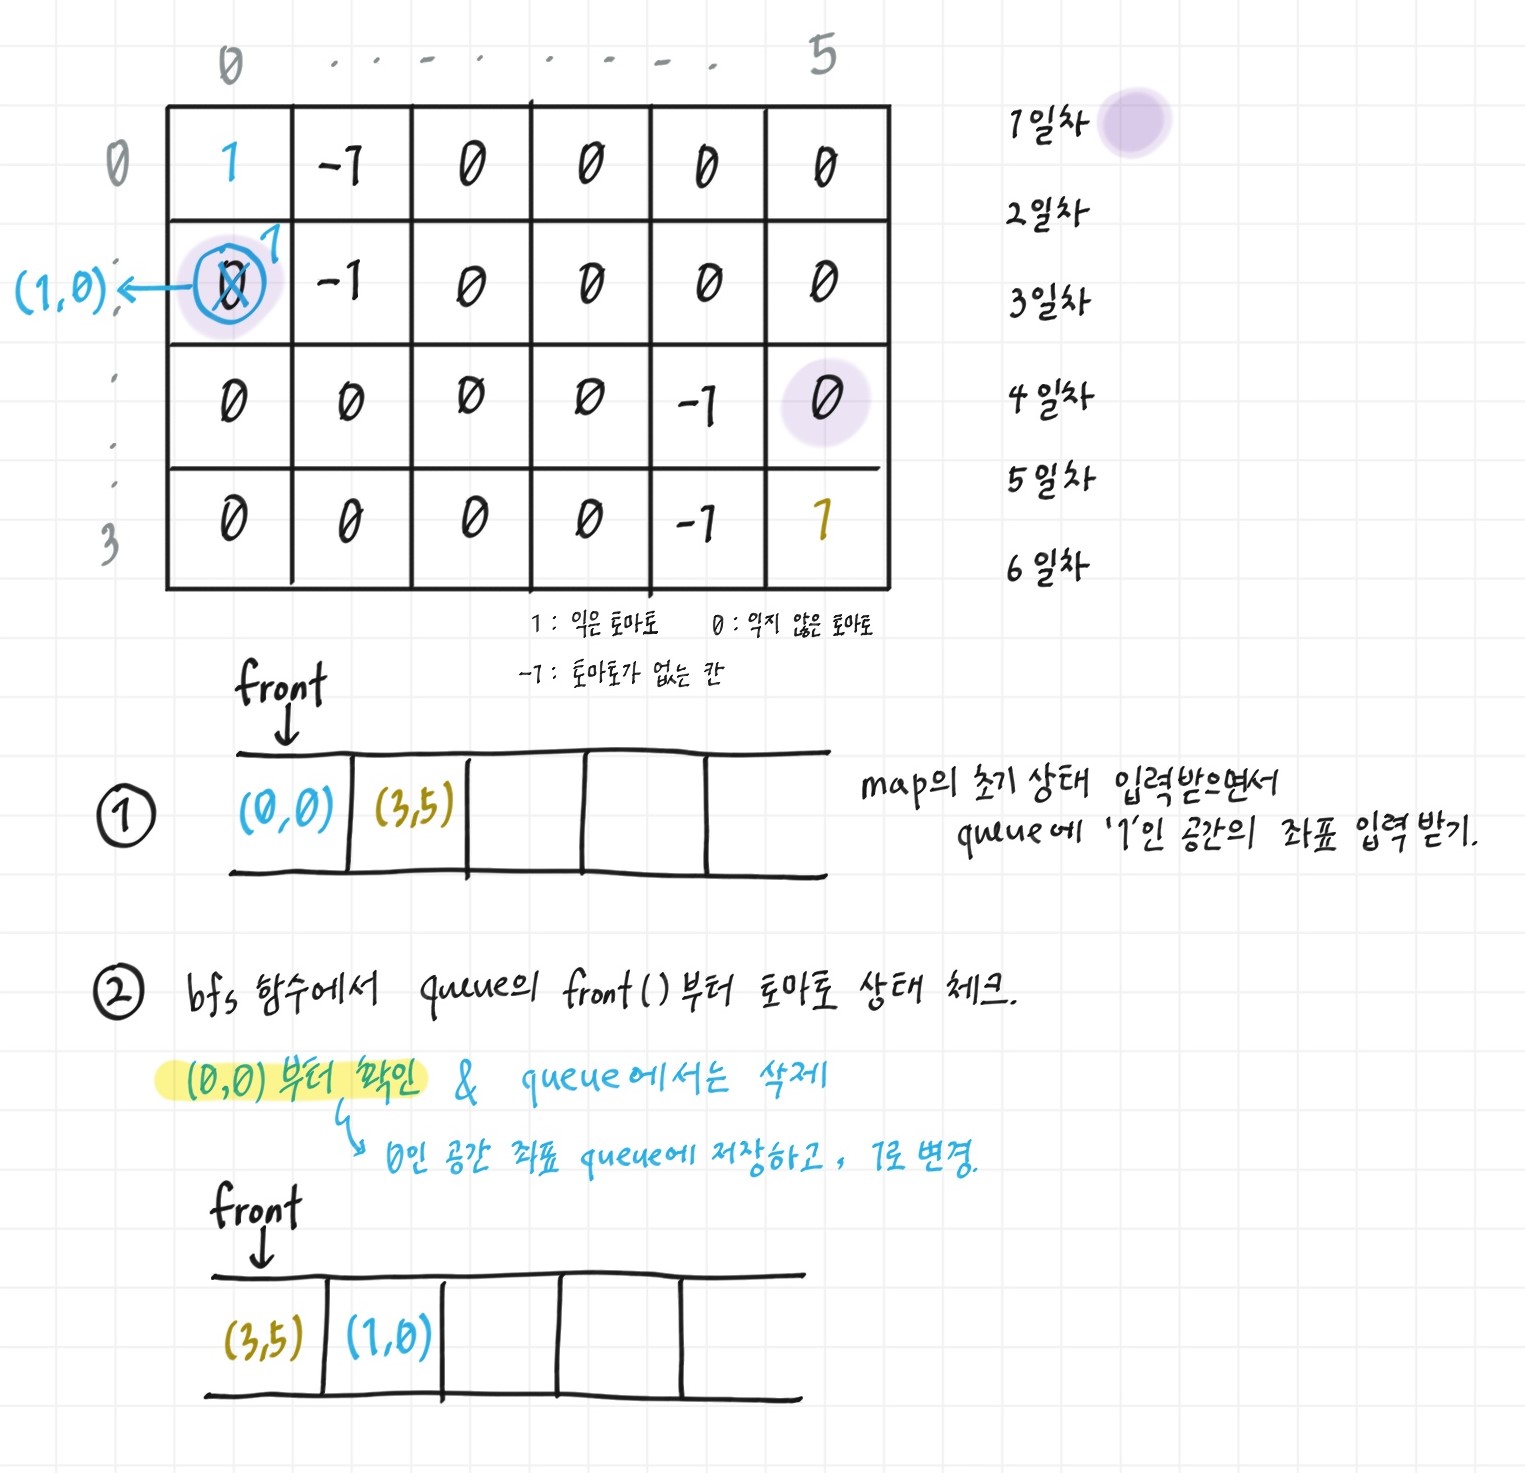 0 . . - . . - - . 5
0 1 -1 0 0 0 0 1일차
2일차
(1,0) 0 1 -1 0 0 0 0
3일차
0 0 0 0 -1 0 4일차
5일차
3 0 0 0 0 -1 1
6일차
1 : 익은 토마토 0 : 익지 않은 토마토
-1 : 토마토가 없는 칸
front
① (0,0) (3,5)
map의 초기 상태 입력받으면서
queue에 '1'인 공간의 좌표 입력 받기.
② bfs 함수에서 queue의 front()부터 토마토 상태 체크.
(0,0) 부터 확인 & queue에서는 삭제
0인 공간 좌표 queue에 저장하고, 1로 변경.
front
(3,5) (1,0)